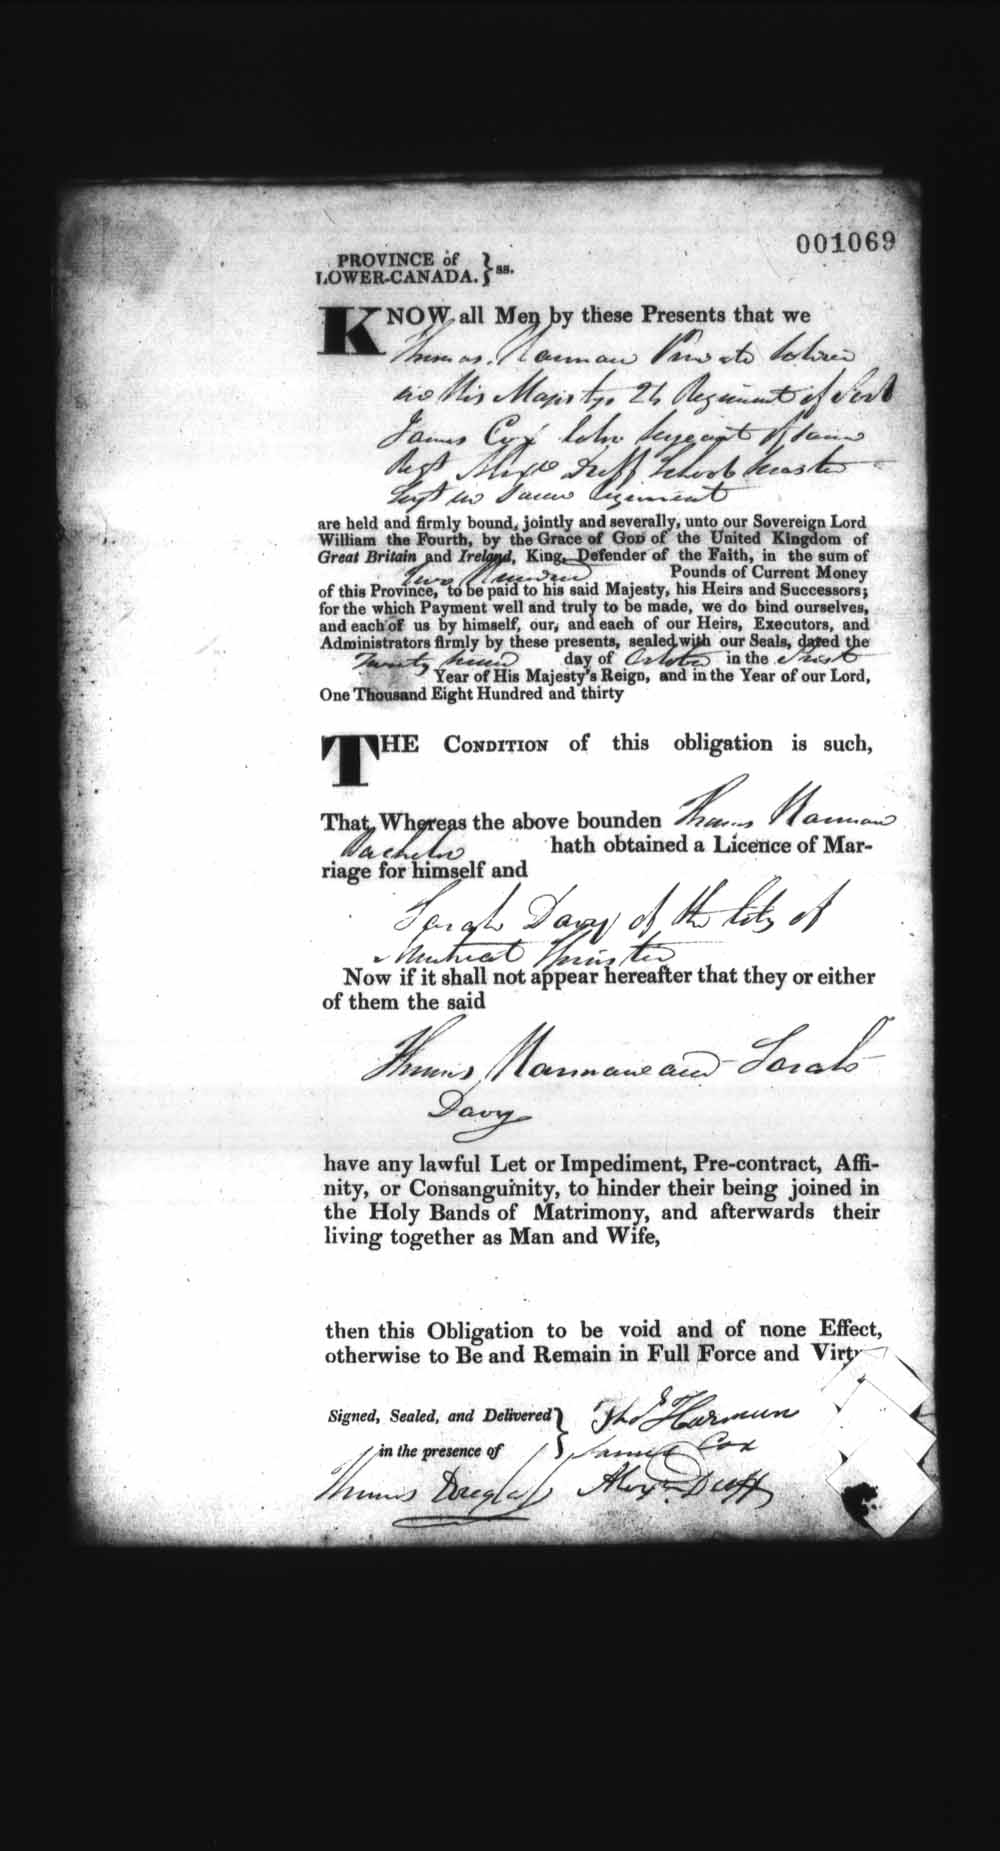 001069
PROVINCE of
LOWER-CANADA. } ss.
KNOW all Men by these Presents that we
Thomas Harman Private Soldier
in His Majestys 24 Regiment of Foot
James Cox Color Sergeant of same
Regt Alexr Duff School Master
Sergt in same Regiment
are held and firmly bound, jointly and severally, unto our Sovereign Lord
William the Fourth, by the Grace of GOD of the United Kingdom of
Great Britain and Ireland, King, Defender of the Faith, in the sum of
Two Hundred Pounds of Current Money
of this Province, to be paid to his said Majesty, his Heirs and Successors;
for the which Payment well and truly to be made, we do bind ourselves,
and each of us by himself, our, and each of our Heirs, Executors, and
Administrators firmly by these presents, sealed with our Seals, dated the
Twenty day of October in the First
Year of His Majesty's Reign, and in the Year of our Lord,
One Thousand Eight Hundred and thirty
THE CONDITION of this obligation is such,
That Whereas the above bounden Thomas Harman
Bachelor hath obtained a Licence of Mar-
riage for himself and
Sarah Davy of the City of
Montreal Spinster
Now if it shall not appear hereafter that they or either
of them the said
Thomas Harman and Sarah
Davy
have any lawful Let or Impediment, Pre-contract, Affi-
nity, or Consanguinity, to hinder their being joined in
the Holy Bands of Matrimony, and afterwards their
living together as Man and Wife,
then this Obligation to be void and of none Effect,
otherwise to Be and Remain in Full Force and Virtu
Signed, Sealed, and Delivered } Thos Harman
in the presence of James Cox
Thomas Douglass Alexr Duff